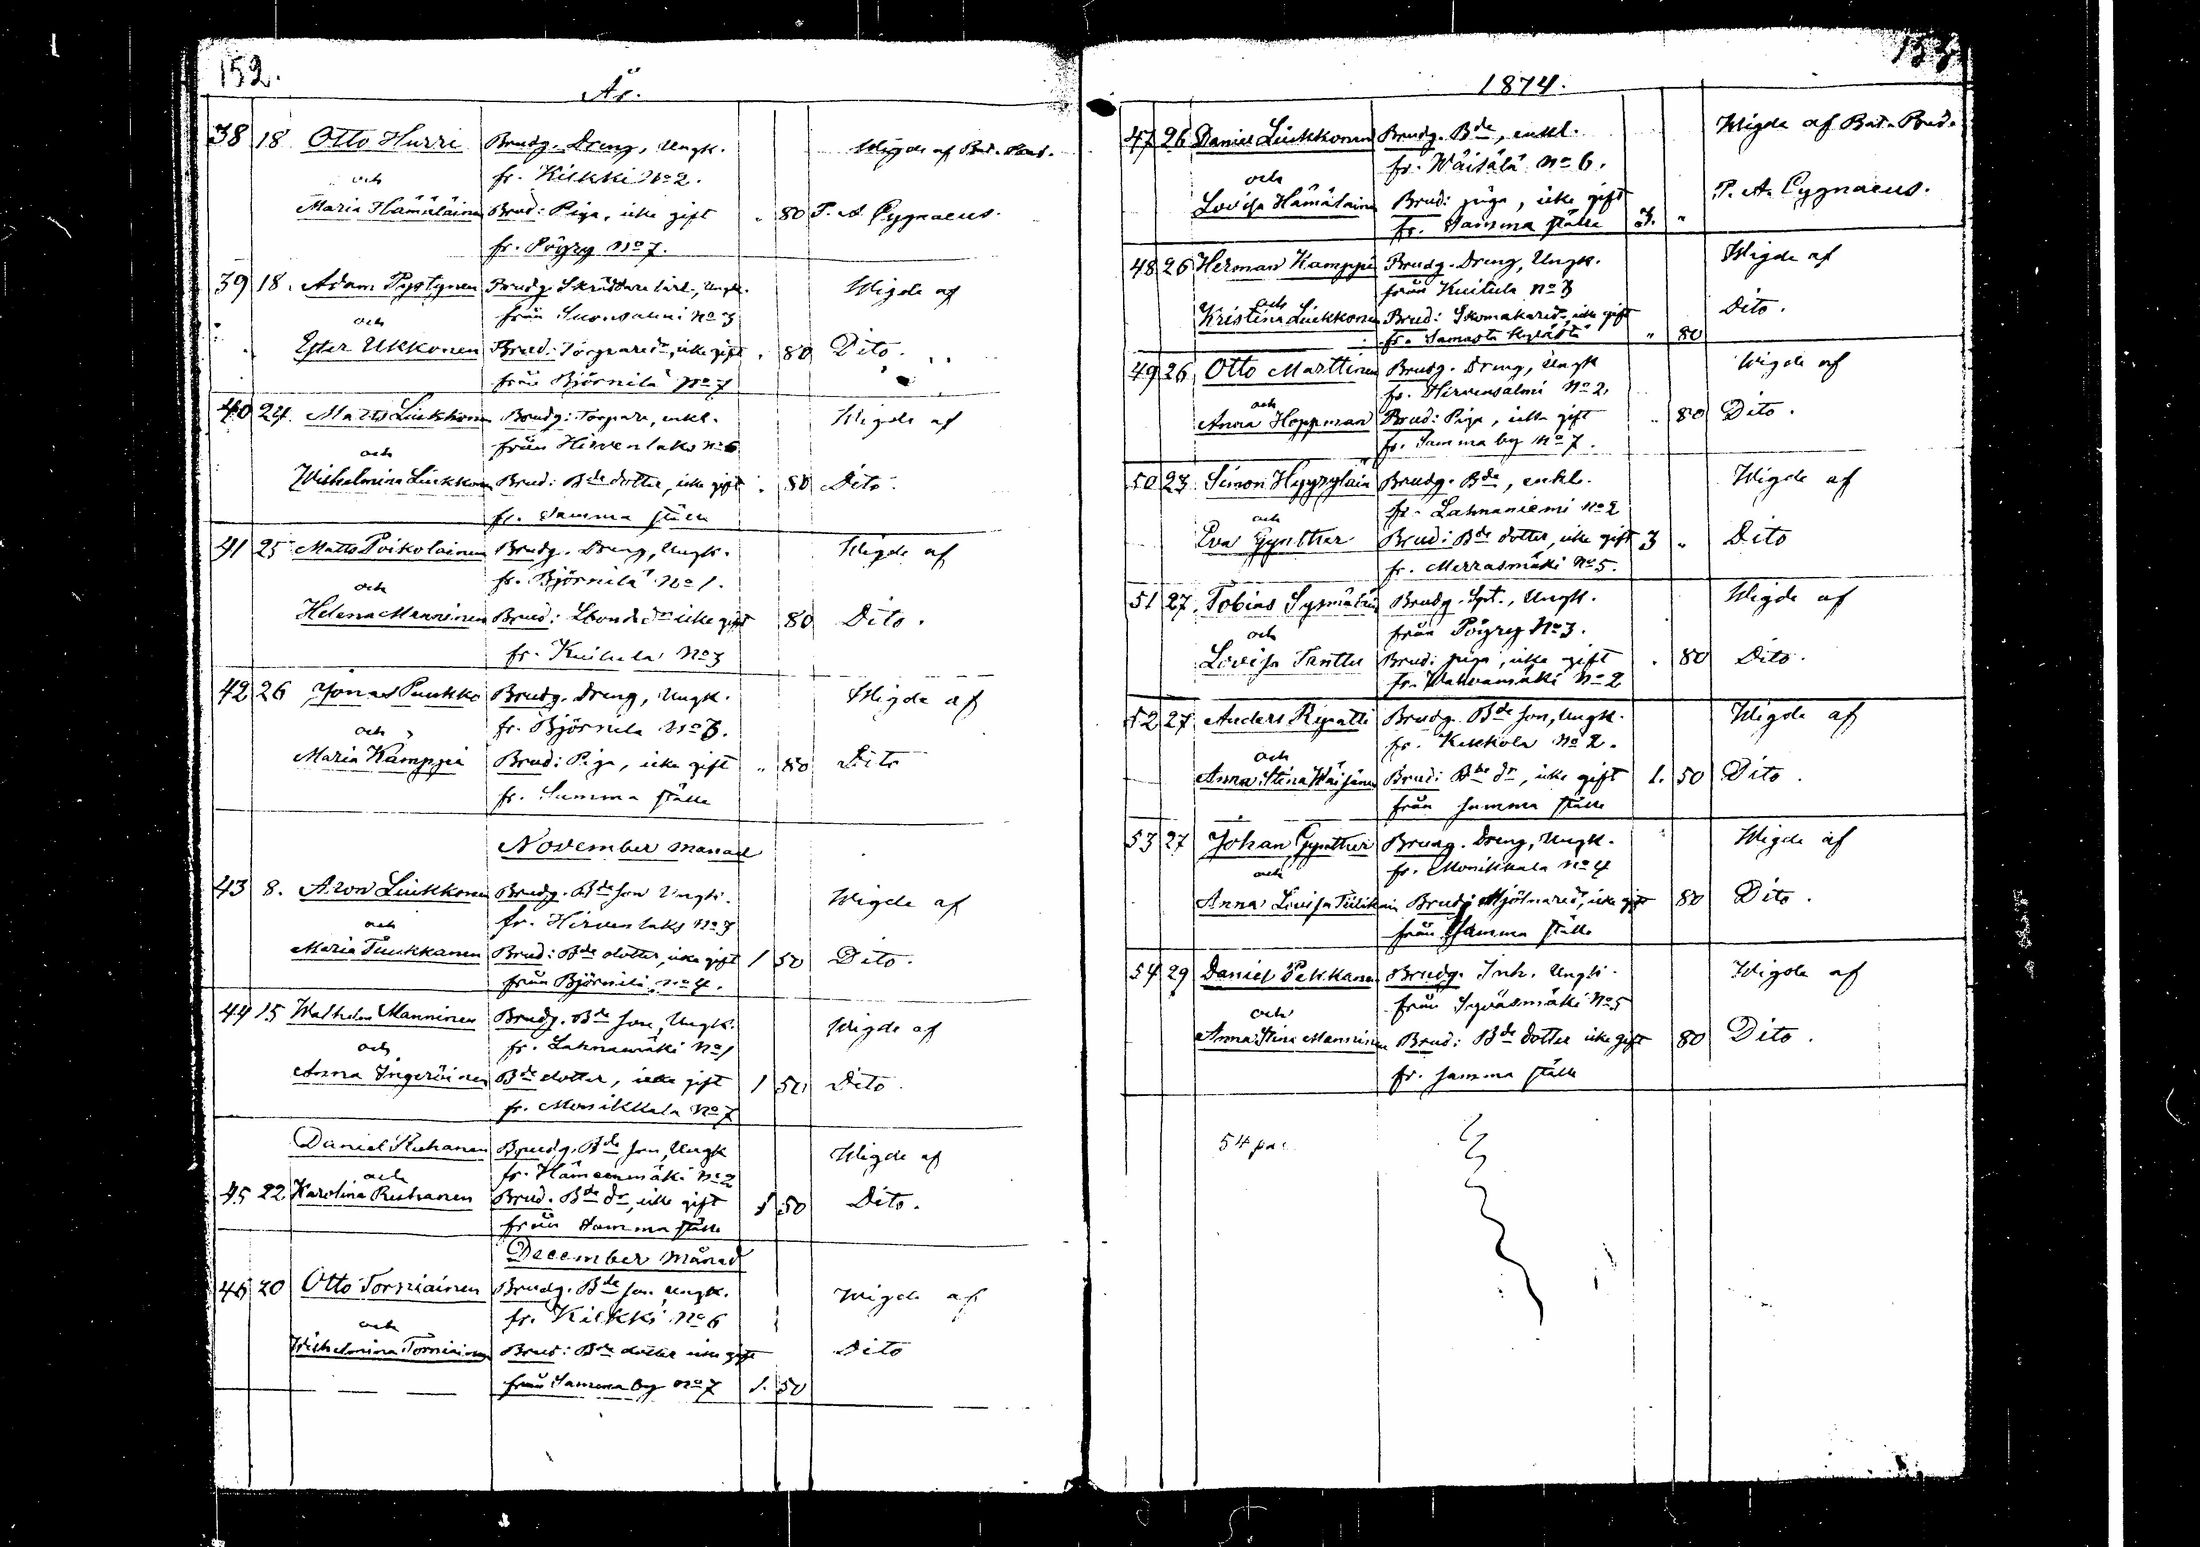 152.
År.
38 18 Otto Hurri Brudg. Dreng, Ungk. Wigde af Bat. Pred.
och fr. Kilkki No 2.
Maria Hämäläinen Brud: Piga, icke gift " 80 P. A. Cygnaeus.
fr. Pöyry No 7.
39 18. Adam Pystynen Brudg. Skräddare lärl., Ungk. Wigde af
och från Suonsalmi No 3
Ester Ukkonen Brud: Torpare dr, icke gift " 80 Dito.
från Björnilä No 7
40 24. Matts Liukkonen Brudg: Torpare, enkl. Wigde af
och från Hirvenlaks No 6
Wilhelmina Liukkonen Brud: Bde dotter, icke gift " 80 Dito.
fr. Samma ställe
41 25 Matts Poikolainen Brudg. Dreng, Ungk. Wigde af
och fr. Björnilä No 1.
Helena Manninen Brud: Lbonde dr icke gift 80 Dito.
fr. Kuitula No 3
42 26 Jonas Puukko Brudg. Dreng, Ungk. Wigde af
och fr. Björnilä No 3.
Maria Kämppi Brud: Piga, icke gift " 80 Dito
fr. Samma ställe
November månad
43 8. Aron Liukkonen Brudg. Bde son Ungk. Wigde af
och fr. Hirvenlaks No 3
Maria Tuukkanen Brud: Bde dotter, icke gift 1 50 Dito.
från Björnilä No 4.
44 15 Wilhelm Manninen Brudg. Bde son, Ungk. Wigde af
och fr. Lahnamäki No 1
Anna Ingeröinen Bde dotter, icke gift 1 50 Dito.
fr. Monikkala No 7
Daniel Brudg. Bde son, Ungk Wigde af
och fr. Hämeenmäki No 2
45 22 Karolina Brud. Bde dr, icke gift 1 50 Dito.
från Samma ställe
December månad
46 20 Otto Torniainen Brudg. Bde son, Ungk. Wigde af
och fr. Kilkki No 6
Wilhelmina Torniainen Brud: Bde dotter icke gift Dito
från Samma by No 7 1. 50
153
1874.
47 26 Daniel Liukkonen Brudg. Bde, enkl. Wigde af Bat. Pred.
och fr. Wäisälä No 6.
Lovisa Hämäläinen Brud: piga, icke gift P. A. Cygnaeus.
fr. Samma ställe 3. "
48 26 Herman Kamppi Brudg. Dreng, Ungk. Wigde af
och från Kuitula No 3
Kristina Liukkonen Brud: Skomakare dr, icke gift Dito.
fr. Samasta kylästä " 80
49 26 Otto Marttinen Brudg. Dreng, Ungk Wigde af
och fr. Hirvensalmi No 2.
Anna Hoppman Brud: Piga, icke gift " 80 Dito.
fr. Samma by No 7.
50 23 Simon Hyyryläin Brudg. Bde, enkl. Wigde af
och fr. Lahnaniemi No 2
Eva Gynther Brud: Bde dotter, icke gift 3 " Dito
fr. Merrasmäki No 5.
51 27. Tobias Sysmäläin Brudg. Spt., Ungk. Wigde af
och från Pöyry No 3.
Lovisa Tanttu Brud: piga, icke gift . 80 Dito.
fr. Wahvamäki No 2
52 27 Anders Ripatti Brudg. Bde son, Ungk. Wigde af
och fr. Kekkola No 2.
Anna Stina Wäisänen Brud: Bde dr, icke gift 1. 50 Dito.
från samma ställe
53 27 Johan Gynther Brudg. Dreng, Ungk. Wigde af
och fr. Monikkala No 4
Anna Lovisa Tiilikain Brud: Mjölnare dr, icke gift 80 Dito.
från Samma ställe
54 29 Daniel Pekkanen Brudg. Inh. Ungk. Wigde af
och från Syväsmäki No 5
Anna Stina Manninen Brud: Bde dotter icke gift 80 Dito.
fr. samma ställe
54 par